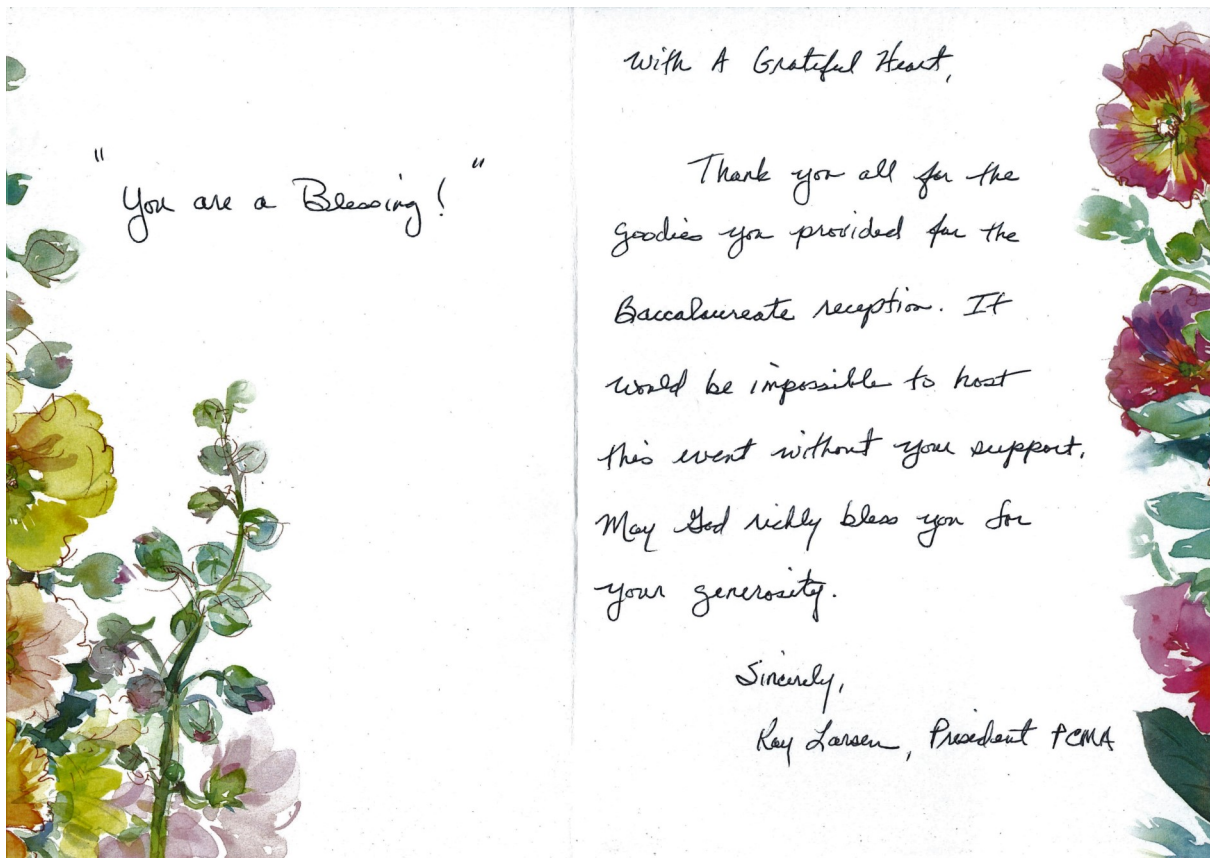 "You are a Blessing!"
With A Grateful Heart,
Thank you all for the
goodies you provided for the
Baccalaureate reception. It
would be impossible to host
this event without your support.
May God richly bless you for
your generosity.
Sincerely,
Kay Larsen, President PCMA